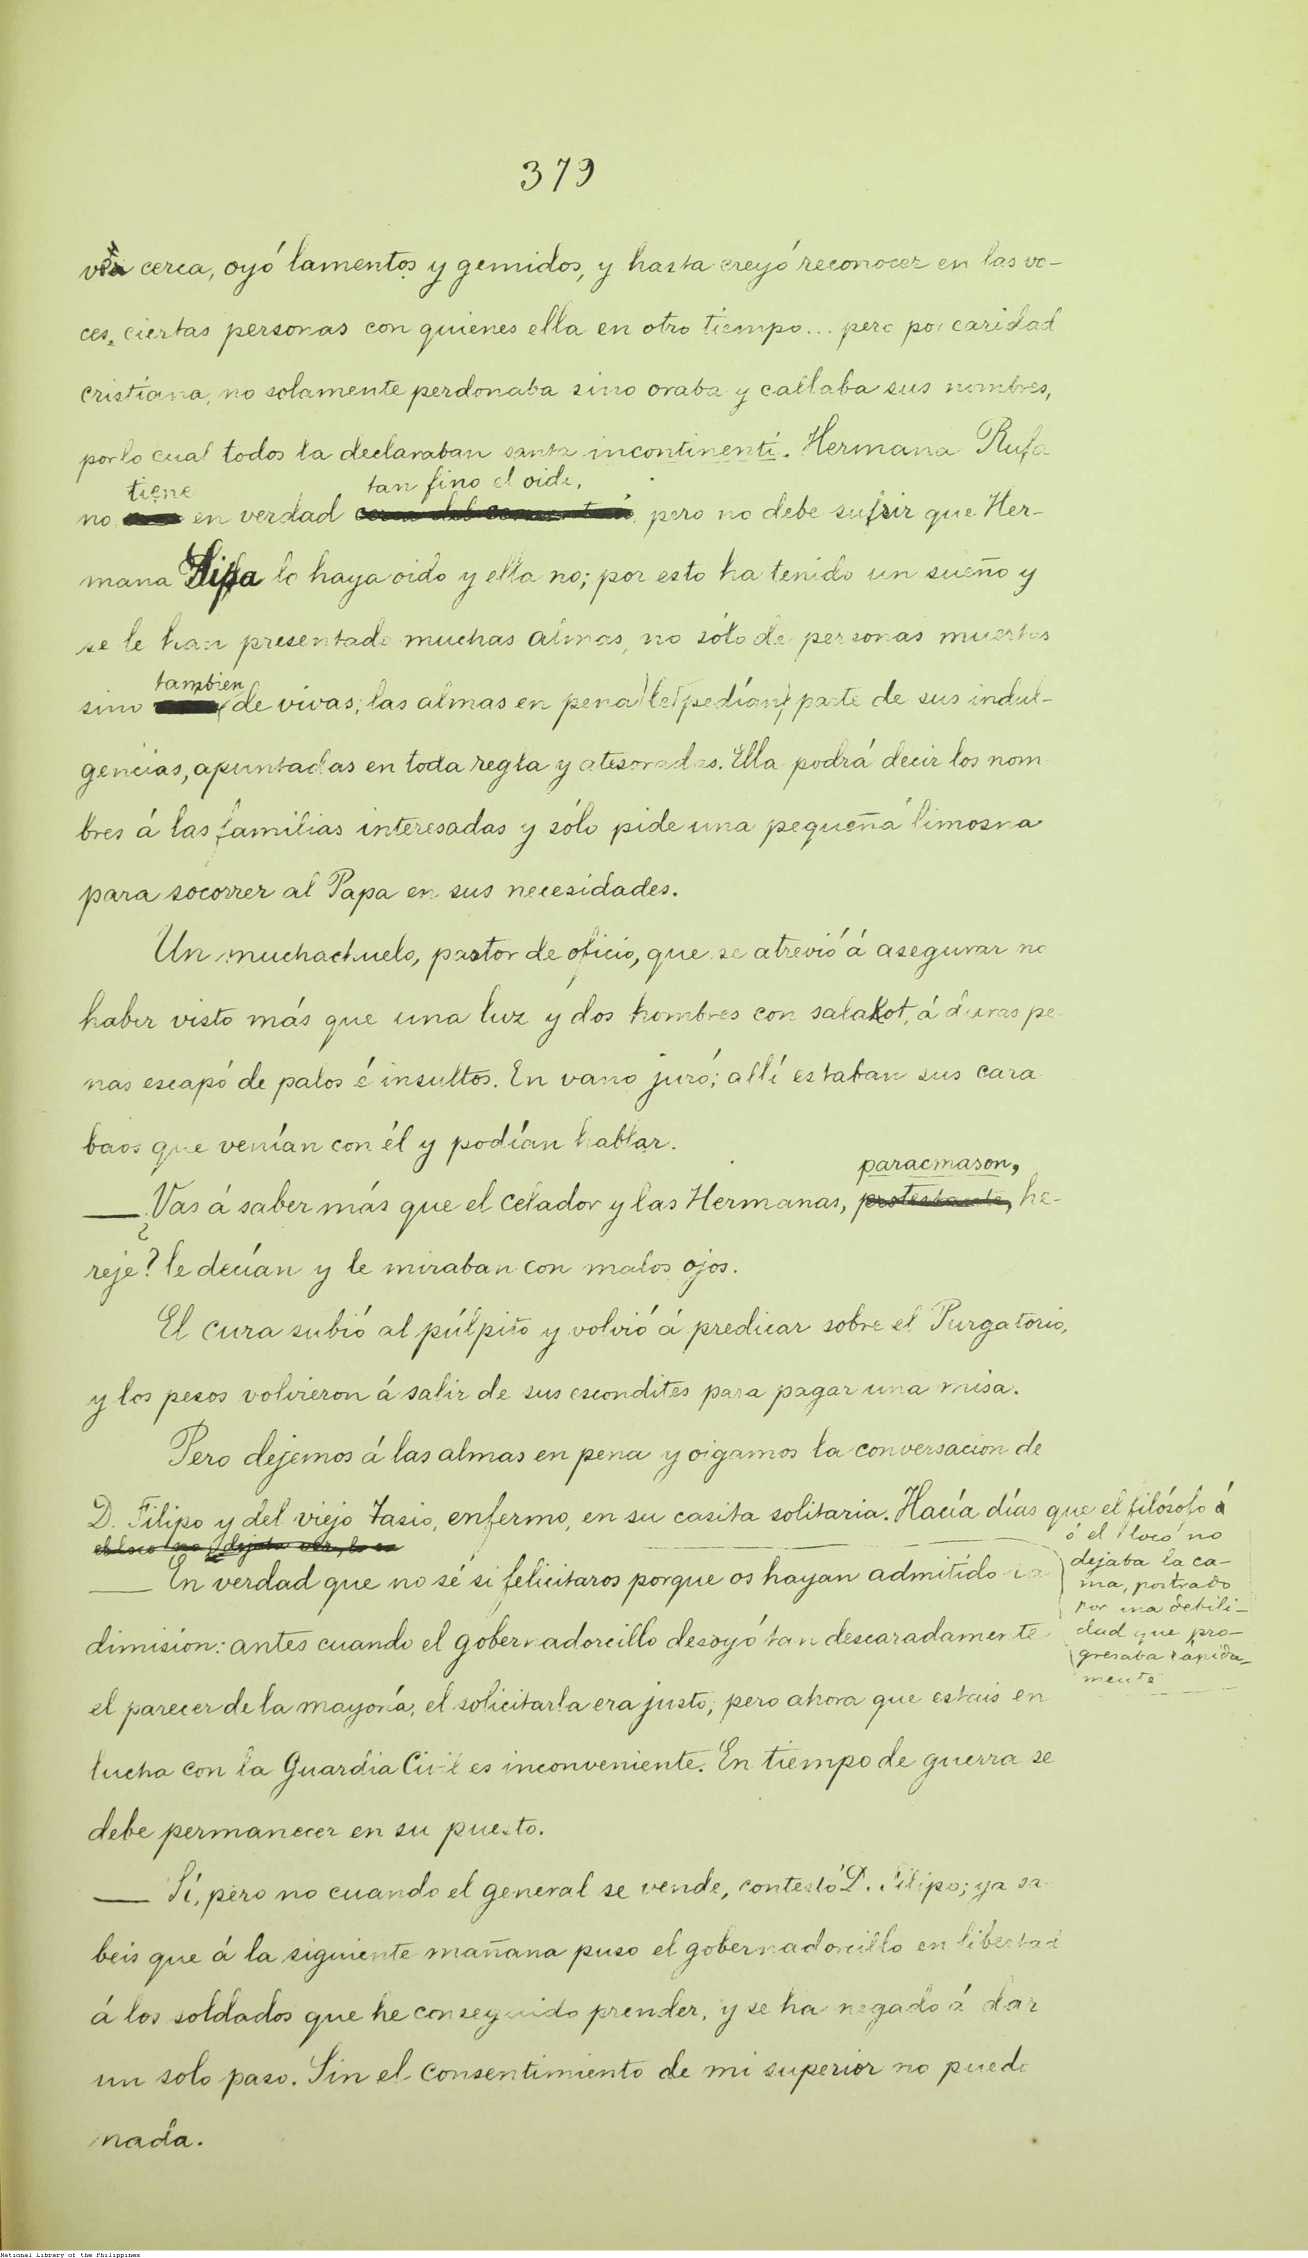 379
cerca, oyó lamentos y gemidos, y hasta creyó reconocer en las vo-
ces, ciertas personas con quienes ella en otro tiempo... pero por caridad
cristiana, no solamente perdonaba sino oraba y callaba sus nombres,
por lo cual todos la declaraban santa incontinenti. Hermana Rufa
tiene tan fino el oido,
no en verdad pero no debe sufrir que Her-
mana Sipa lo haya oido y ella no; por esto ha tenido un sueño y
se le han presentado muchas almas, no sólo de personas muertas
tambien
sino de vivas; las almas en pena le pedían parte de sus indul-
gencias, apuntadas en toda regla y atesoradas. Ella podrá decir los nom
bres á las familias interesadas y sólo pide una pequeña limosna
para socorrer al Papa en sus necesidades.
Un muchachuelo, pastor de oficio, que se atrevió á asegurar no
haber visto más que una luz y dos hombres con salakot, á duras pe
nas escapó de palos é insultos. En vano juró; allí estaban sus cara
baos que venían con él y podían hablar.
paracmason,
— ¿Vas á saber más que el celador y las Hermanas, protestante, he-
reje? le decían y le miraban con malos ojos.
El cura subió al púlpito y volvió á predicar sobre el Purgatorio,
y los pesos volvieron á salir de sus escondites para pagar una misa.
Pero dejemos á las almas en pena y oigamos la conversacion de
D. Filipo y del viejo Tasio, enfermo, en su casita solitaria. Hacía días que el filósofo
ó el loco no
dejaba la ca-
ma, postrado
por una debili-
dad que pro-
gresaba rápida-
mente
— En verdad que no sé si felicitaros porque os hayan admitido la
dimisión: antes cuando el gobernadorcillo desoyó tan descaradamente
el parecer de la mayoría, el solicitarla era justo; pero ahora que estais en
lucha con la Guardia Civil es inconveniente. En tiempo de guerra se
debe permanecer en su puesto.
— Sí, pero no cuando el general se vende, contestó D. Filipo; ya sa
beis que á la siguiente mañana puso el gobernadorcillo en libertad
á los soldados que he conseguido prender, y se ha negado á dar
un solo paso. Sin el consentimiento de mi superior no puedo
nada.
National Library of the Philippines